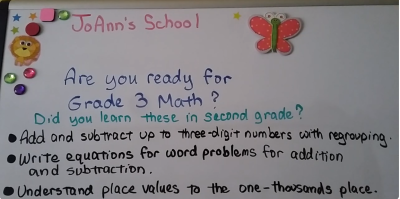 JoAnn's School
Are you ready for
Grade 3 Math?
Did you learn these in second grade?
• Add and subtract up to three-digit numbers with regrouping.
• Write equations for word problems for addition
and subtraction.
• Understand place values to the one-thousands place.